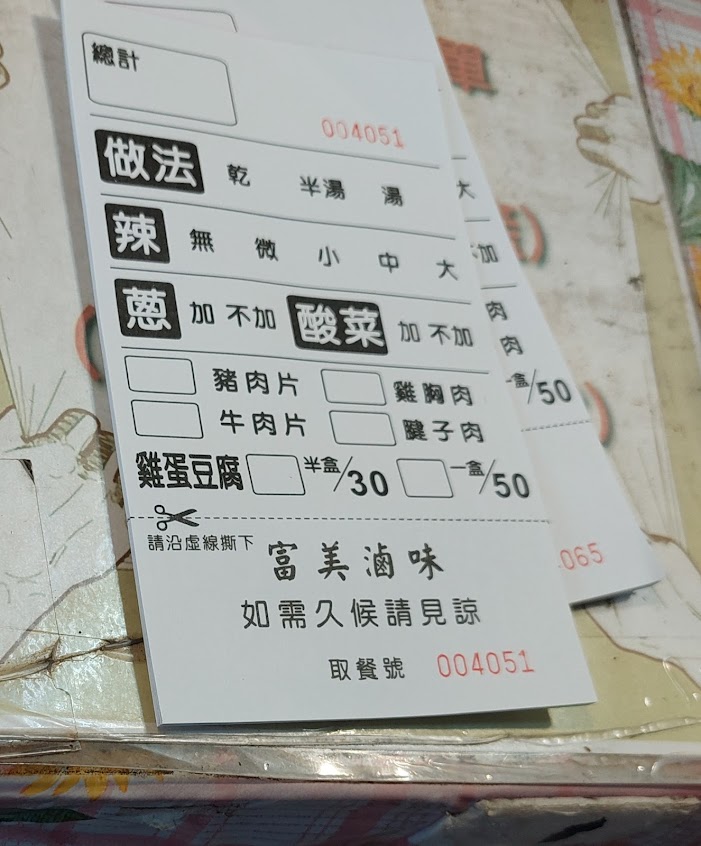 總計
004051
做法 乾 半湯 湯
辣 無 微 小 中 大
蔥 加 不加 酸菜 加 不加
豬肉片 雞胸肉
牛肉片 腱子肉
雞蛋豆腐 半盒/30 一盒/50
請沿虛線撕下
富美滷味
如需久候請見諒
取餐號 004051
單
大
加
肉
肉
一盒/50
065